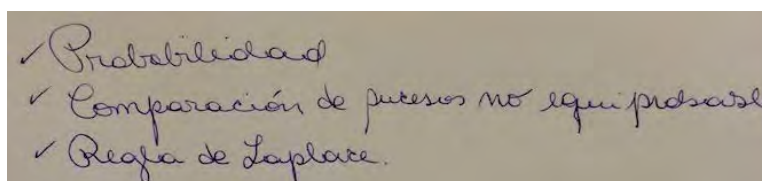 ✓ Probabilidad
✓ Comparación de sucesos no equiprobabl
✓ Regla de Laplace.